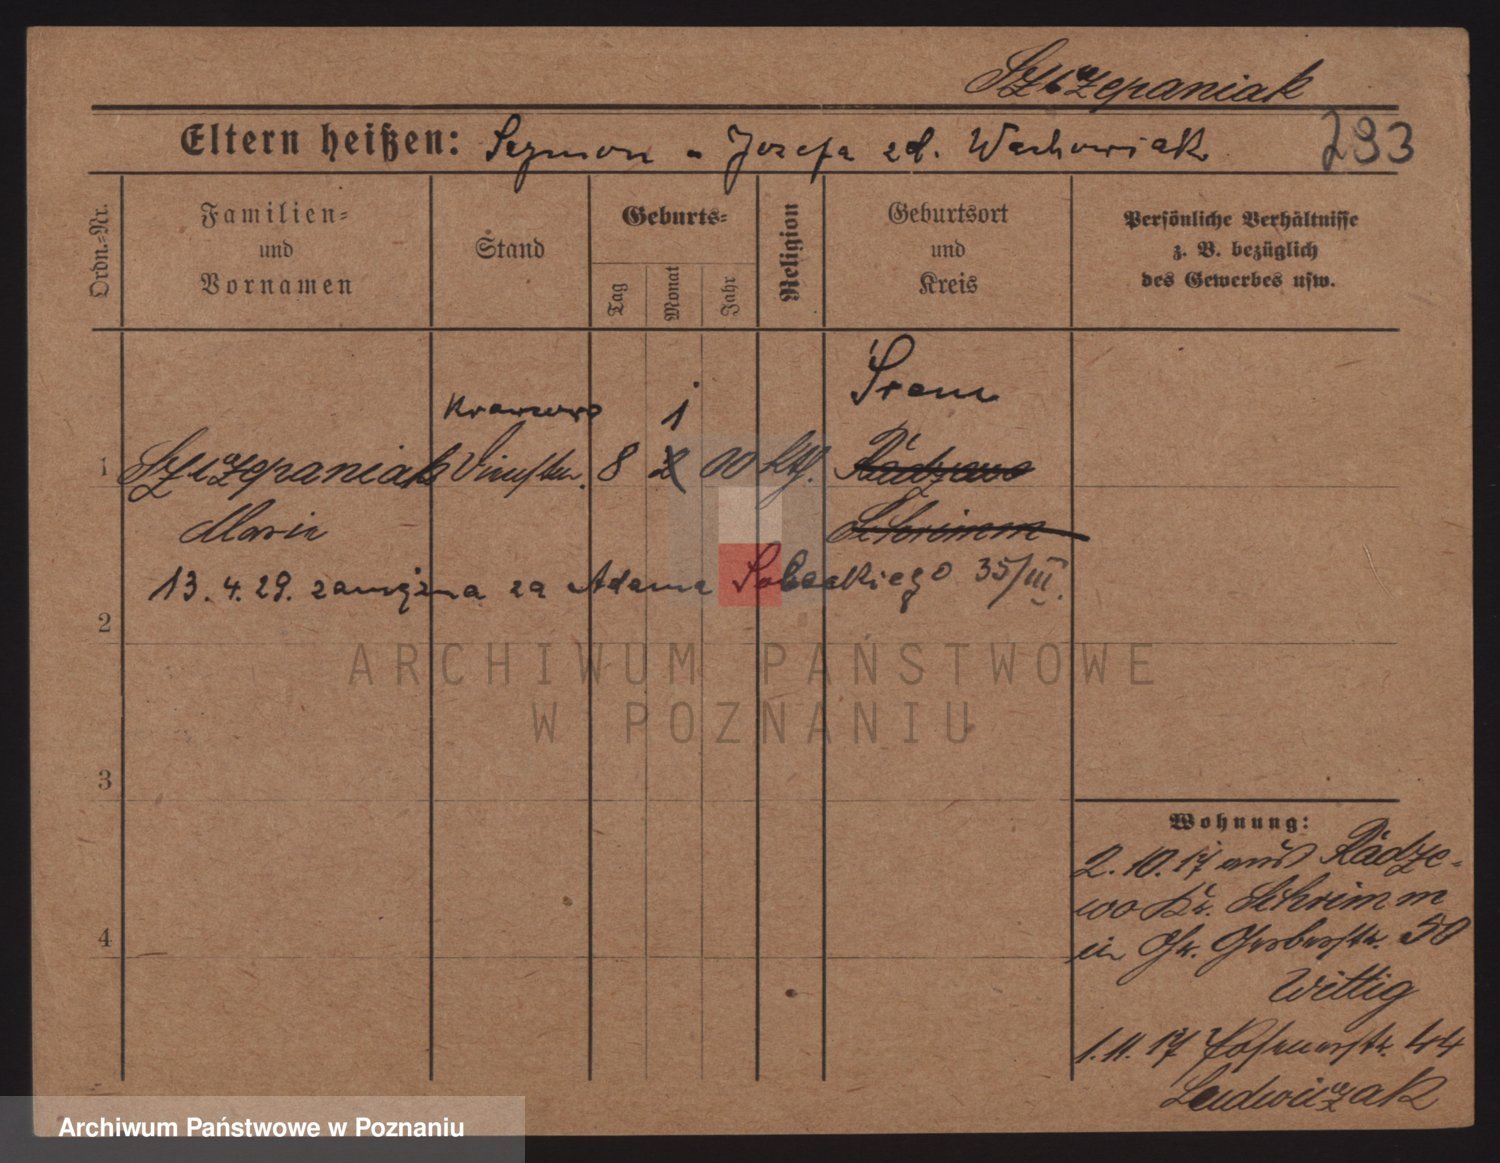 Szczepaniak
Eltern heißen: Szymon - Jozefa zd. Wachowiak 293
Ordn.-Nr.
Familien-
und
Vornamen
Stand
Geburts-
Tag
Monat
Jahr
Religion
Geburtsort
und
Kreis
Persönliche Verhältnisse
z. B. bezüglich
des Gewerbes usw.
Śrem
1
1 Szczepaniak 8 2 00 kth. Radzewo
Marie Schrimm
13. 4. 29. zamężna za Adama Sobeckiego 35/III.
2
3
4
Wohnung:
2. 10. 17 aus Radze-
wo Kr. Schrimm
in Gr. Gerberstr. 50
Wittig
1. 11. 17 Posenerstr. 44
Ludwiczak
ARCHIWUM PAŃSTWOWE
W POZNANIU
Archiwum Państwowe w Poznaniu